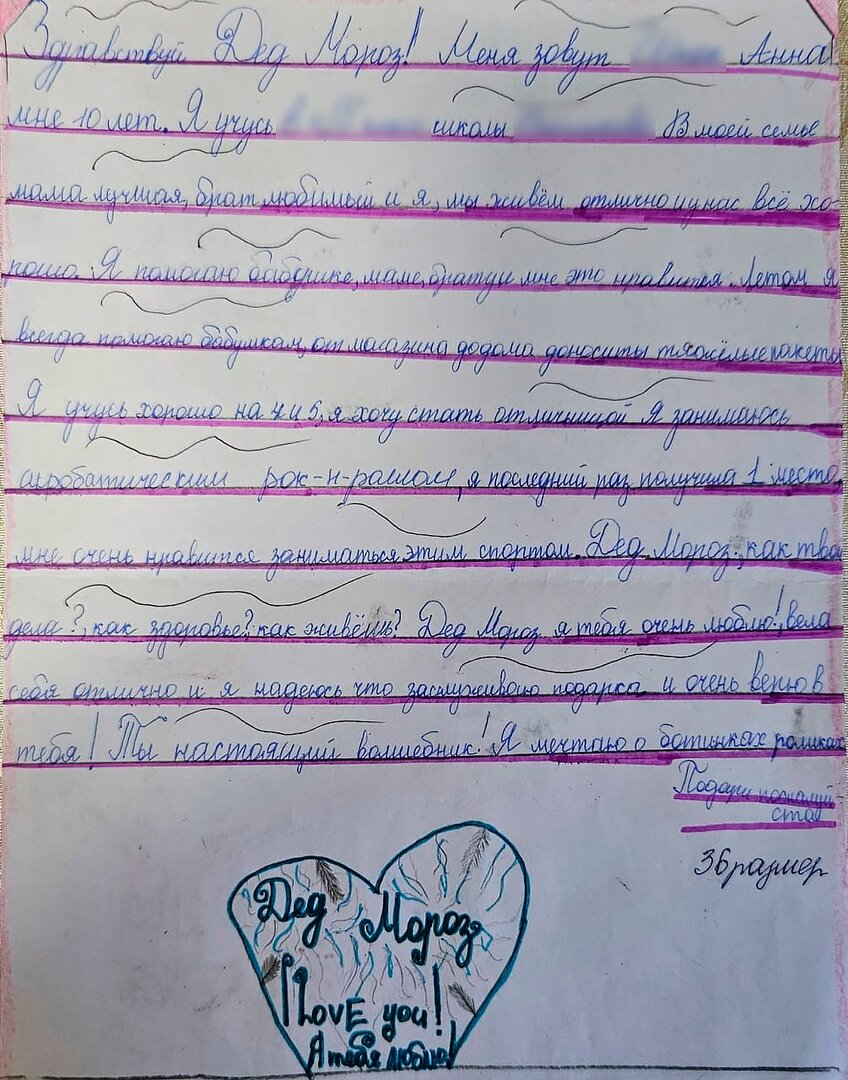 Здравствуй Дед Мороз! Меня зовут Анна
мне 10 лет. Я учусь школы В моей семье
мама лучшая, брат любимый и я, мы живём отлично и у нас всё хо-
рошо. Я помогаю бабушке, маме, брату и мне это нравится. Летом я
всегда помогаю бабушкам, от магазина додома доносить тяжёлые пакеты
Я учусь хорошо на 4 и 5, я хочу стать отличницой Я занимаюсь
акробатическим рок-н-роллом, я последний раз получила 1 место,
мне очень нравится заниматься этим спортом. Дед Мороз, как твои
дела?, как здоровье?, как живёшь? Дед Мороз я тебя очень люблю!, вела
себя отлично и я надеюсь что заслуживаю подарка и очень верю в
тебя! Ты настоящий волшебник! Я мечтаю о ботинках роликах
Подари пожалуй-
ста
36 размер
Дед Мороз
I LovE you!
Я тебя люблю!